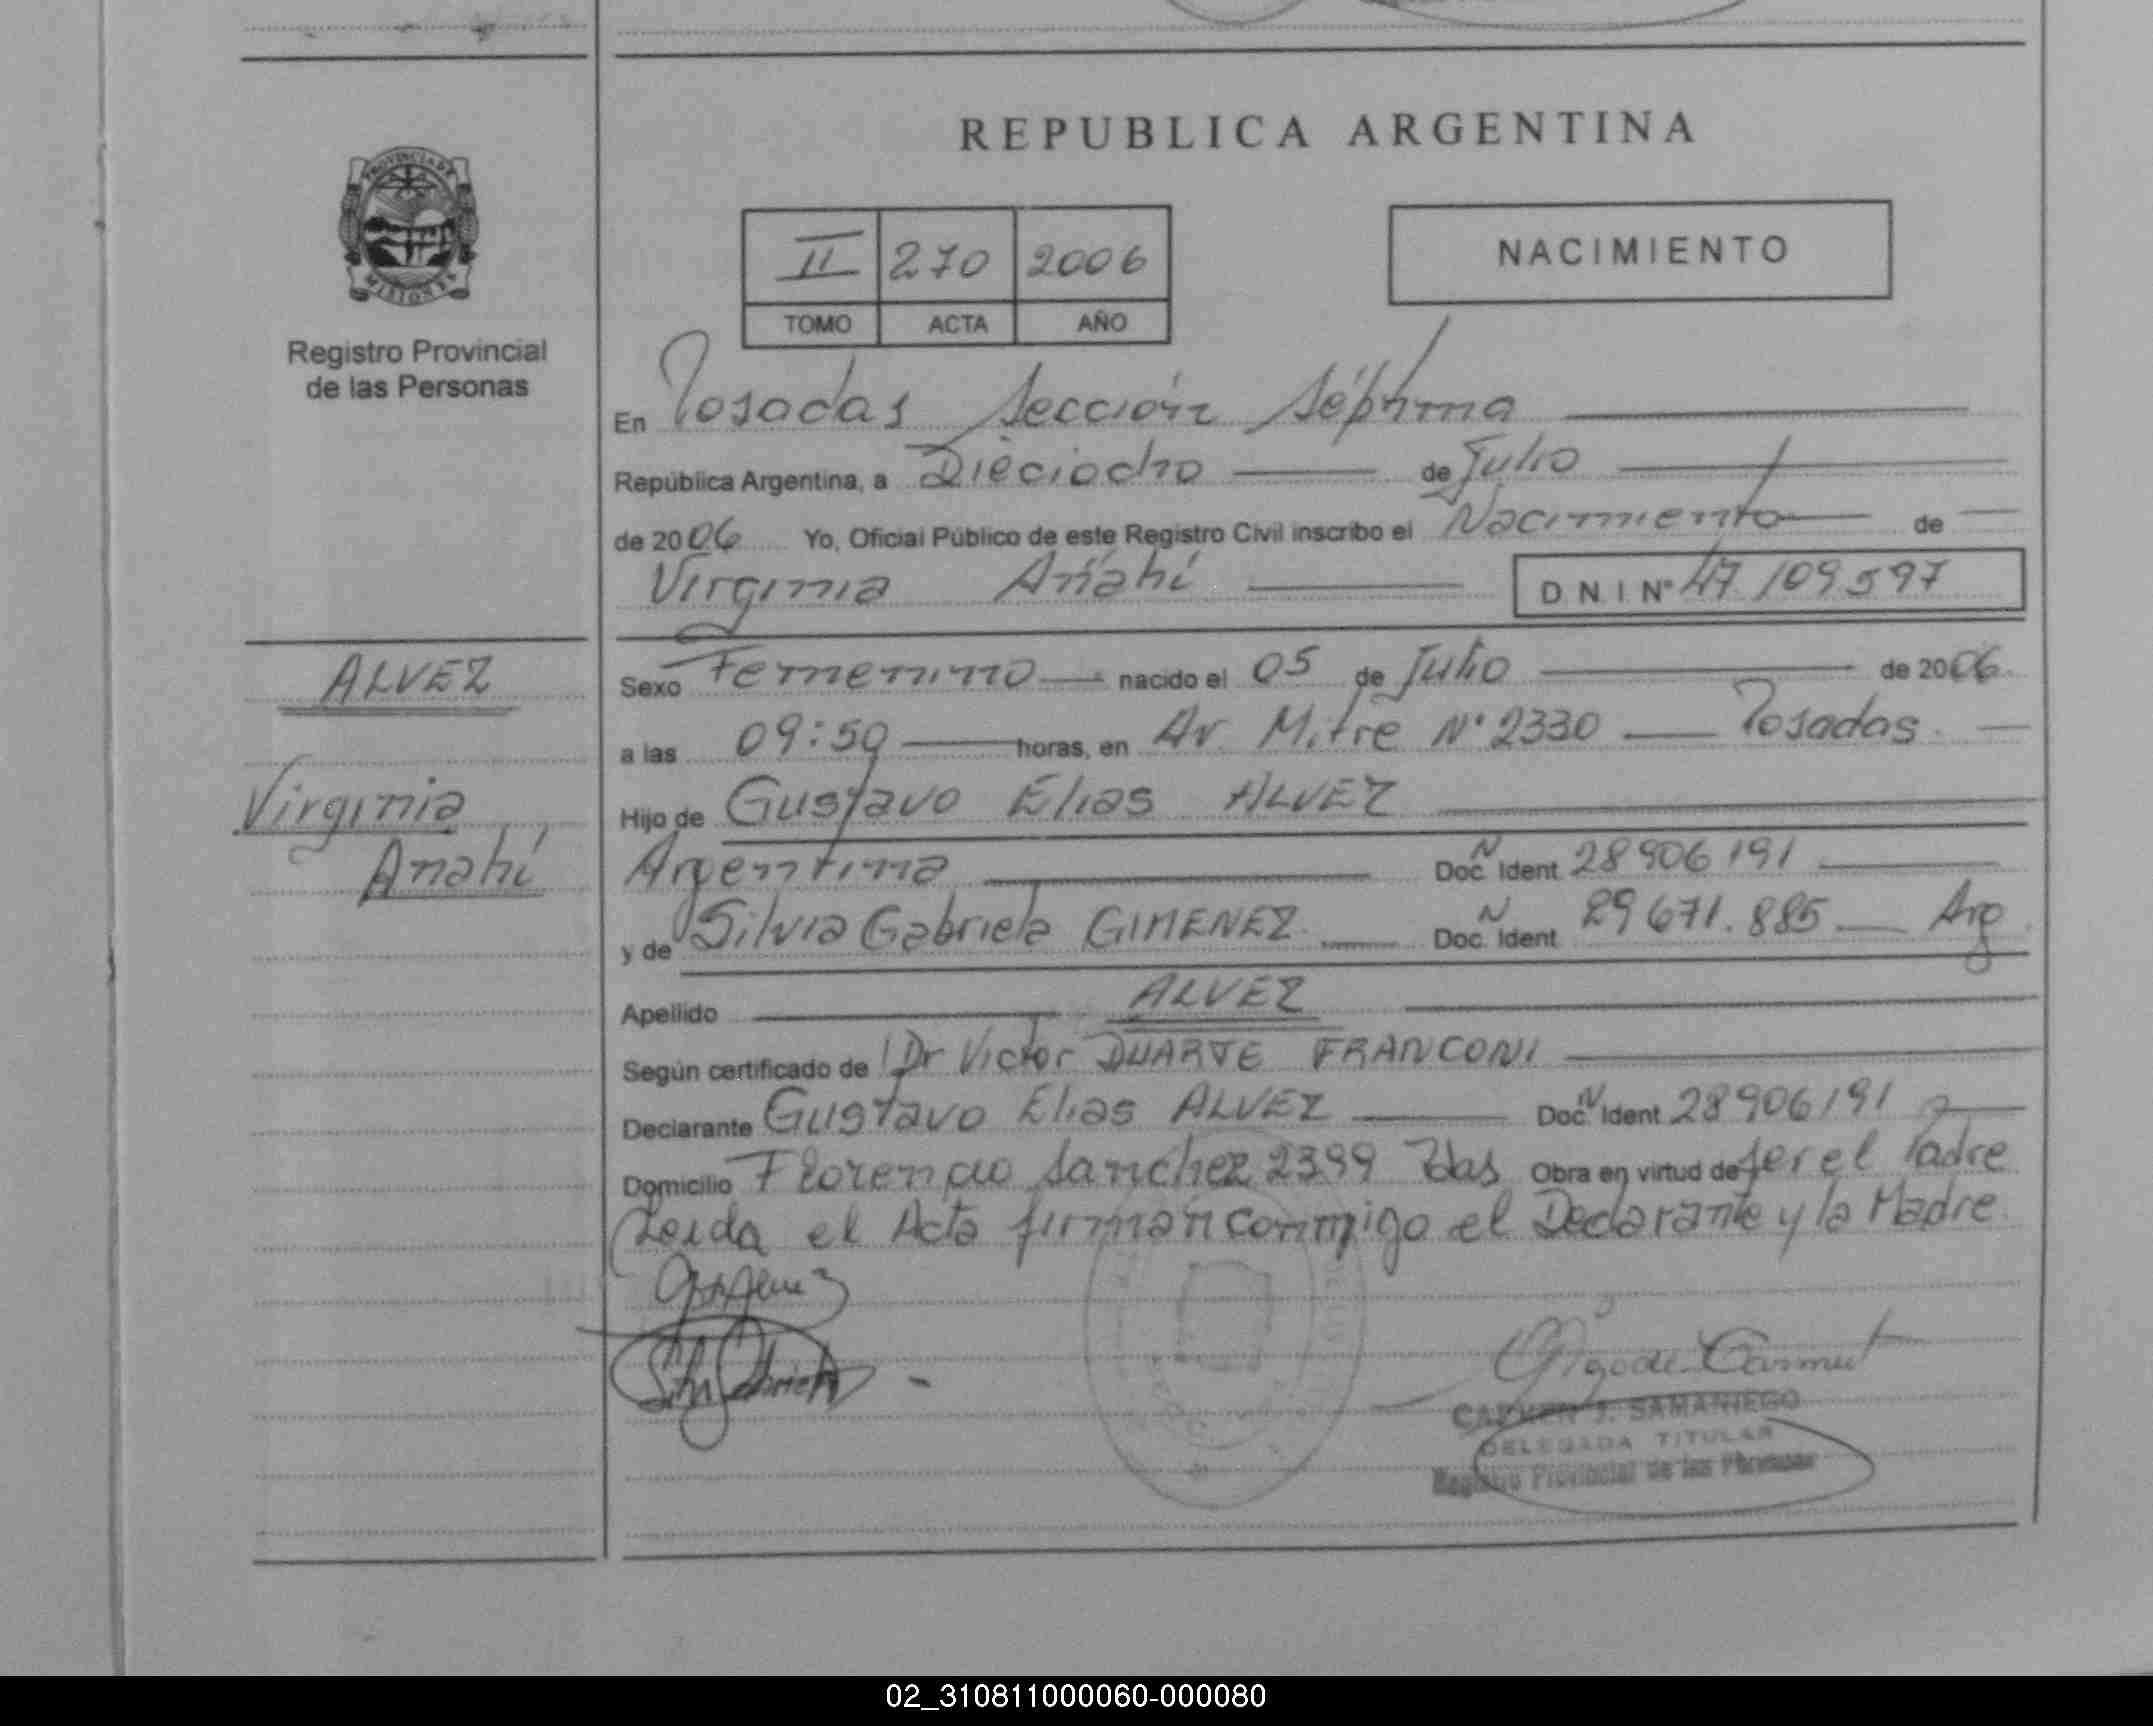 REPUBLICA ARGENTINA
PROVINCIA DE
MISIONES
Registro Provincial
de las Personas
II 270 2006
TOMO ACTA AÑO
NACIMIENTO
En Posadas Sección Séptima
República Argentina, a Dieciocho de Julio
de 2006 Yo, Oficial Público de este Registro Civil inscribo el Nacimiento de
Virginia Anahí D N I Nº 47 109 597
ALVEZ
Virginia
Anahí
Sexo Femenino nacido el 05 de Julio de 2006
a las 09:50 horas, en Av. Mitre Nº 2330 Posadas
Hijo de Gustavo Elias ALVEZ
Argentina Doc. N Ident 28906191
y de Silvia Gabriela GIMENEZ Doc. N Ident 29671.885 Arg
Apellido ALVEZ
Según certificado de Dr Victor DUARTE FRANCONI
Declarante Gustavo Elias ALVEZ Doc. N Ident 28906191
Domicilio Florencio Sanchez 2399 Pdas Obra en virtud de ser el Padre
Leida el Acta firman conmigo el Declarante y la Madre
CARMEN J. SAMANIEGO
DELEGADA TITULAR
Registro Provincial de las Personas
02_310811000060-000080